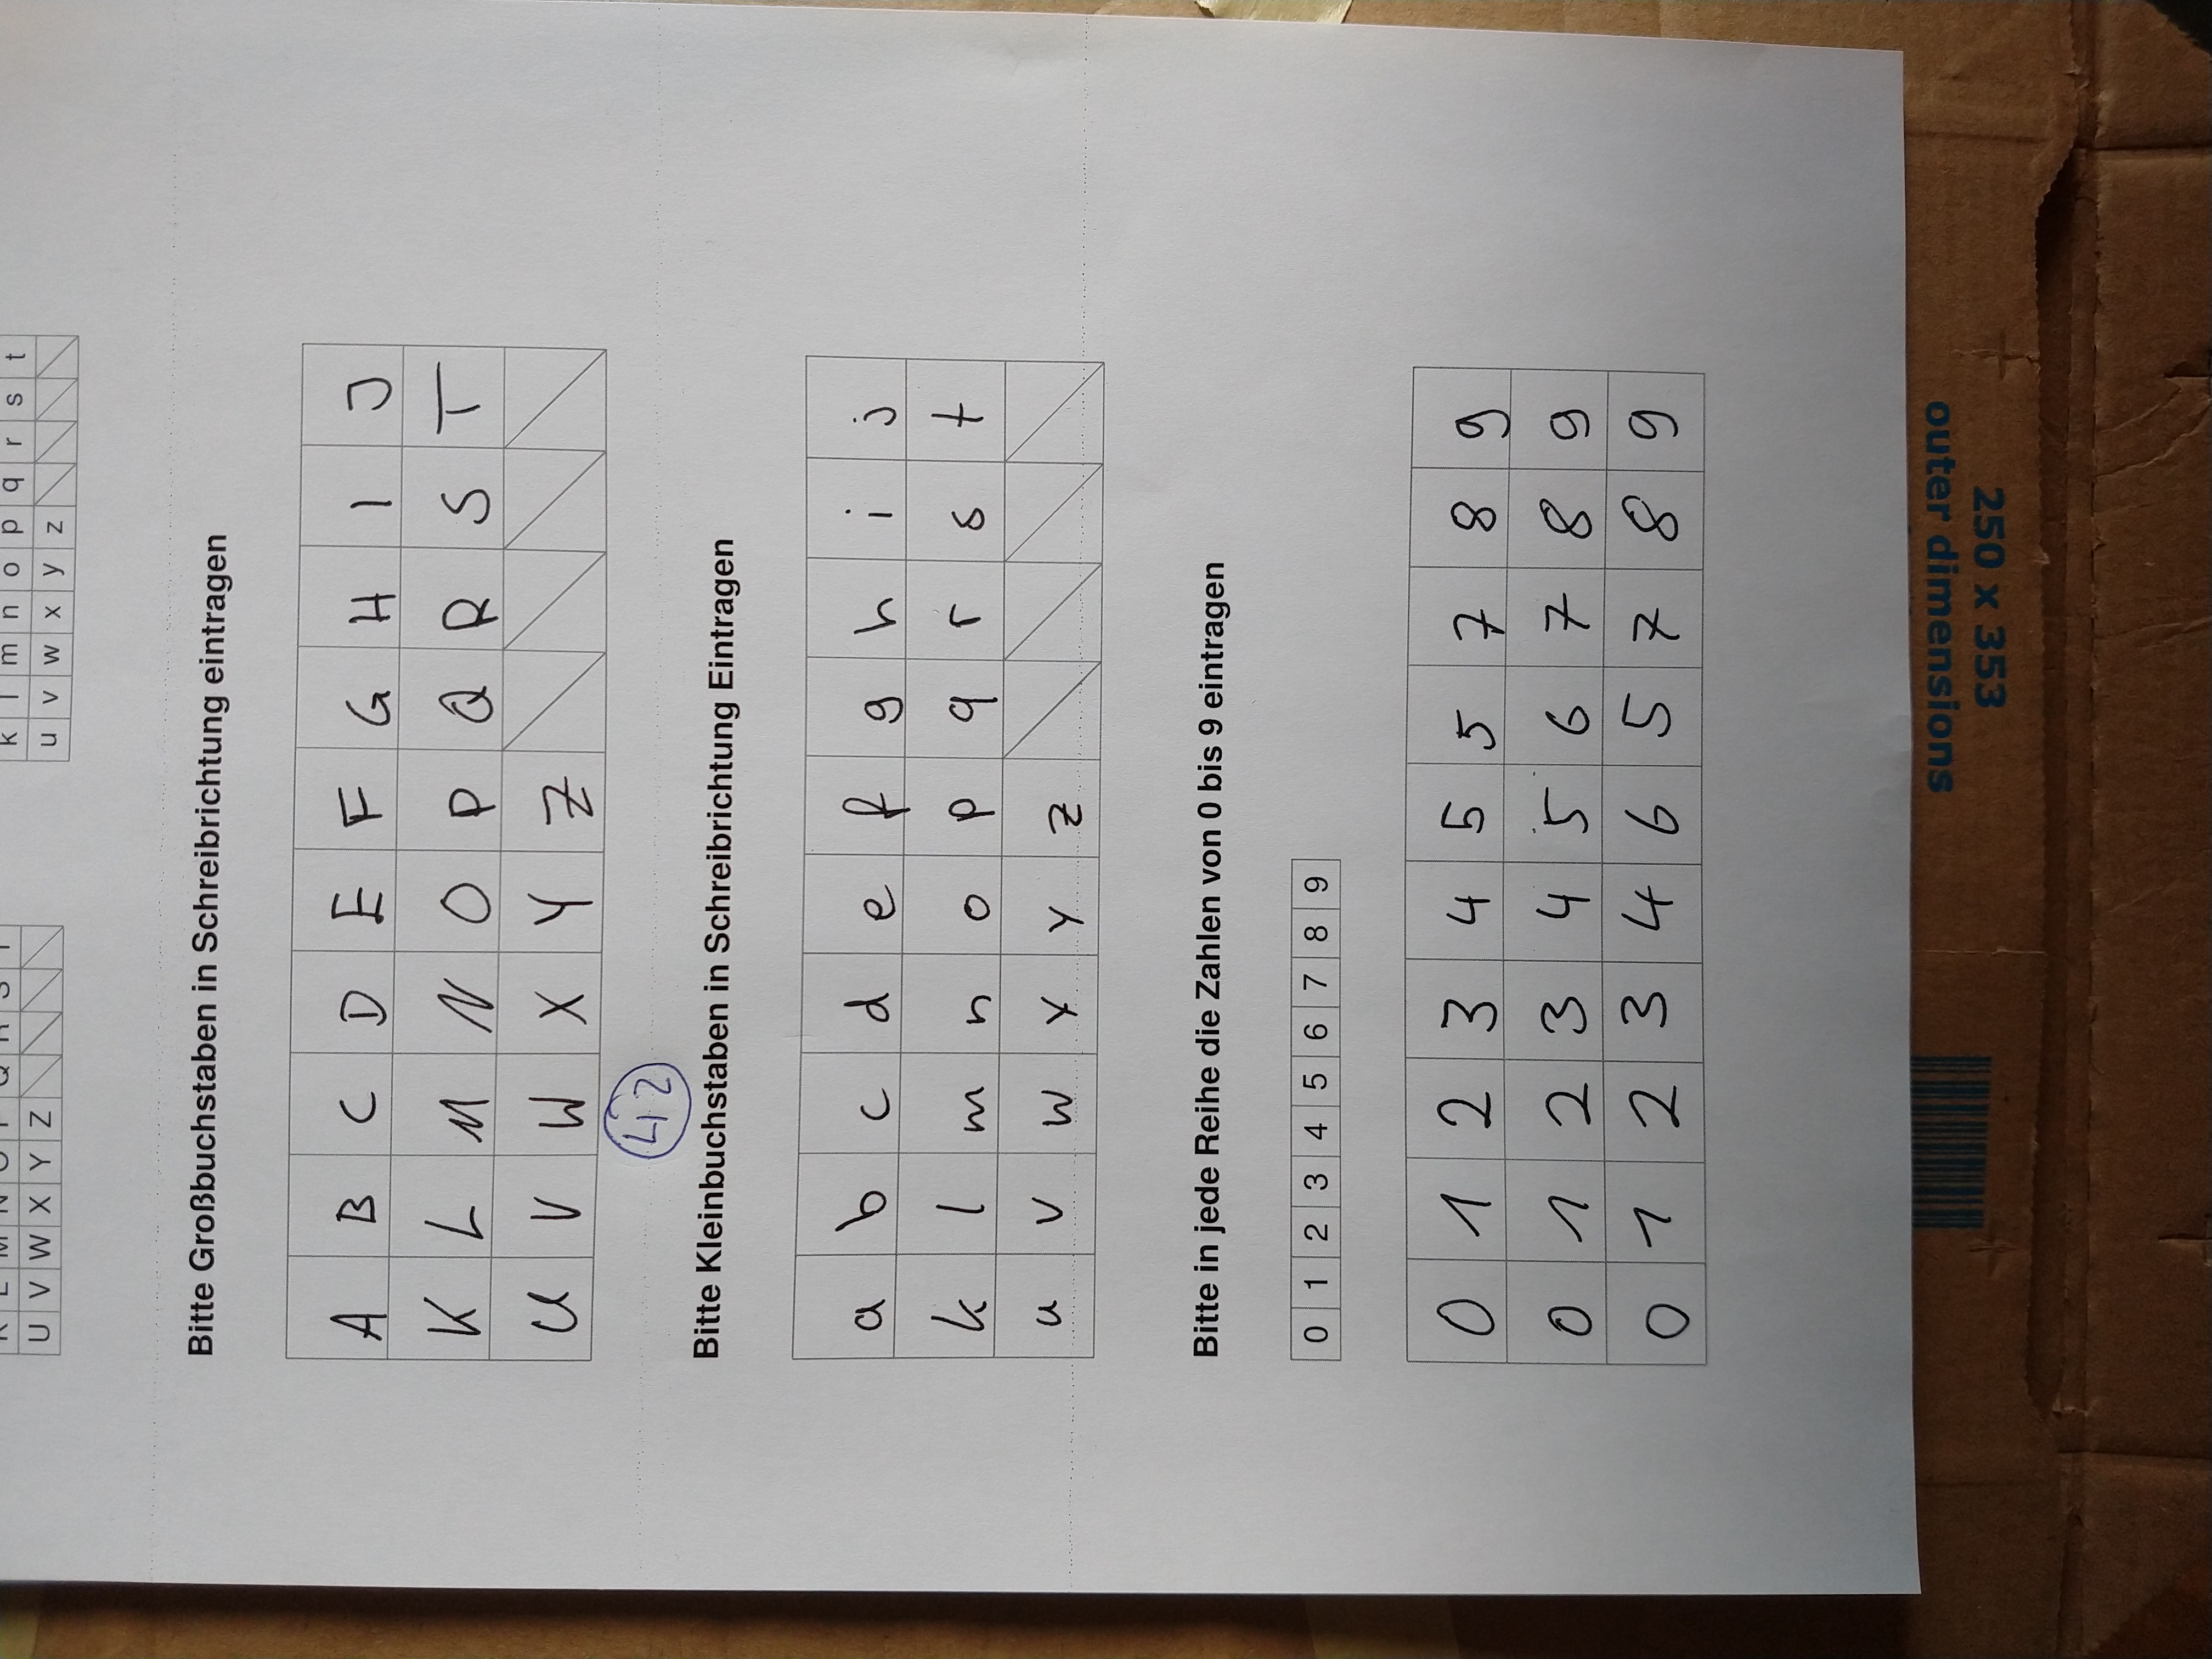 K L M N O P Q R S T
U V W X Y Z
k l m n o p q r s t
u v w x y z
Bitte Großbuchstaben in Schreibrichtung eintragen
A B C D E F G H I J
K L M N O P Q R S T
U V W X Y Z
42
Bitte Kleinbuchstaben in Schreibrichtung Eintragen
a b c d e f g h i j
k l m n o p q r s t
u v w x y z
Bitte in jede Reihe die Zahlen von 0 bis 9 eintragen
0 1 2 3 4 5 6 7 8 9
0 1 2 3 4 5 5 7 8 9
0 1 2 3 4 5 6 7 8 9
0 1 2 3 4 6 5 7 8 9
250 x 353
outer dimensions